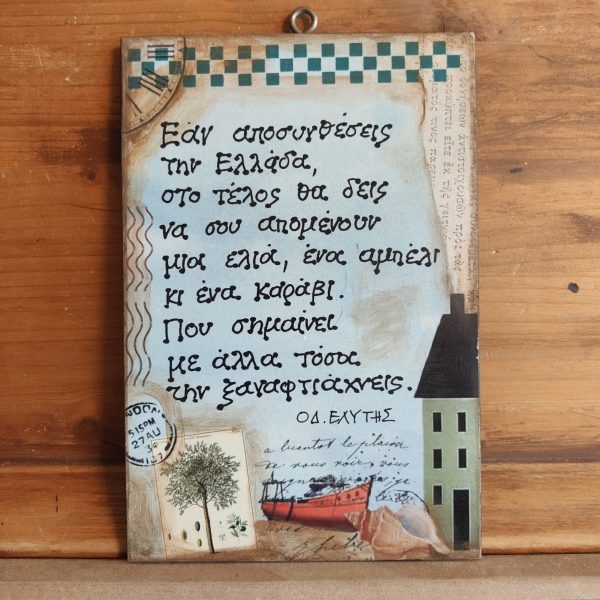 Εάν αποσυνθέσεις
την Ελλάδα,
στο τέλος θα δεις
να σου απομένουν
μια ελιά, ένα αμπέλι
κι ένα καράβι.
Που σημαίνει
με άλλα τόσα
την ξαναφτιάχνεις.
ΟΔ. ΕΛΥΤΗΣ
5 15PM
27AU
a bientot le plaisir
de vous voir, vous